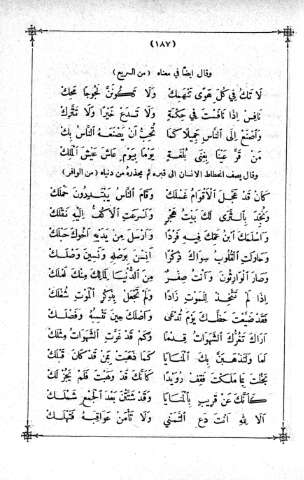 (١٨٧)
وقال ايضا في معناه (من السريع)
لَا تَكُ فِي كُلِّ هَوًى تَنْهَمِكْ وَلَا تَكُونَنَّ لَجُوجًا مَحِكْ
نَافِسْ إِذَا نَافَسْتَ فِي حِكْمَةٍ وَلَا تَدَعْ خَيْرًا وَلَا تَتَّرِكْ
وَاصْنَعْ إِلَى النَّاسِ جَمِيلًا كَمَا تُحِبُّ أَنْ يَصْنَعَهُ النَّاسُ بِكْ
مَنْ قَرَّ عَيْنًا بِغِنَى بُلْغَةٍ يَوْمًا بِيَوْمٍ عَاشَ عَيْشَ الْمَلِكْ
وقال يصف انحطاط الانسان الى قبره ثم يحذره من دنياه (من الوافر)
كَأَنْ قَدْ عَجَّلَ الْأَقْوَامُ غَسْلَكْ وَقَامَ النَّاسُ يَبْتَدِرُونَ حَمْلَكْ
وَنُجِّدَ بِالثَّرَى لَكَ بَيْتُ هَجْرٍ وَأَسْرَعَتِ الْأَكُفُّ إِلَيْهِ نَقْلَكْ
وَأَسْلَمَكَ ابْنُ عَمِّكَ فِيهِ فَرْدًا وَأَرْسَلَ مِنْ يَدَيْهِ أَخُوكَ حَبْلَكْ
وَحَاوَلَتِ الْقُلُوبُ سِوَاكَ ذِكْرًا أَنِسْنَ بِوَصْلِهِ وَنَسِينَ وَصْلَكْ
وَصَارَ الْوَارِثُونَ وَأَنْتَ صِفْرٌ مِنَ الدُّنْيَا لِمَالِكَ مِنْكَ أَمْلَكْ
إِذَا لَمْ تَتَّخِذْ لِلْمَوْتِ زَادًا وَلَمْ تَجْعَلْ بِذِكْرِ الْمَوْتِ شُغْلَكْ
فَقَدْ ضَيَّعْتَ حَظَّكَ يَوْمَ تُدْعَى وَأَصْلَكَ حِينَ تَنْسِبُهُ وَفَضْلَكْ
أَرَاكَ تَغُرُّكَ الشَّهَوَاتُ قِدْمًا وَكَمْ قَدْ غَرَّتِ الشَّهَوَاتُ مِثْلَكْ
أَمَا وَلَتَذْهَبَنَّ بِكَ الْمَنَايَا كَمَا ذَهَبَتْ بِمَنْ قَدْ كَانَ قَبْلَكْ
بَخِلْتَ بِمَا مَلَكْتَ فَقِفْ رُوَيْدًا كَأَنَّكَ قَدْ وَهَبْتَ فَلَمْ يَجُزْ لَكْ
كَأَنَّكَ عَنْ قَرِيبٍ بِالْمَنَايَا وَقَدْ شَتَّتْنَ بَعْدَ الْجَمْعِ شَمْلَكْ
أَلَا لِلّٰهِ أَنْتَ دَعِ التَّمَنِّي وَلَا تَأْمَنْ عَوَاقِبَهُ فَتَهْلِكْ